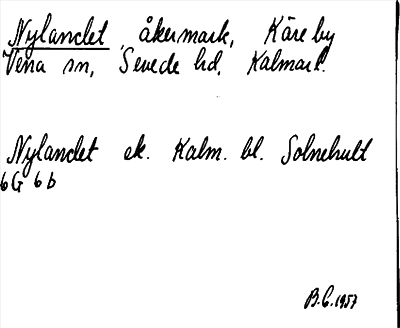 Nylandet, åkermark, Käreby
Vena sn, Sevede hd, Kalmar l.
Nylandet ek. Kalm. bl. Solnehult
6G 6b
B.C. 1957